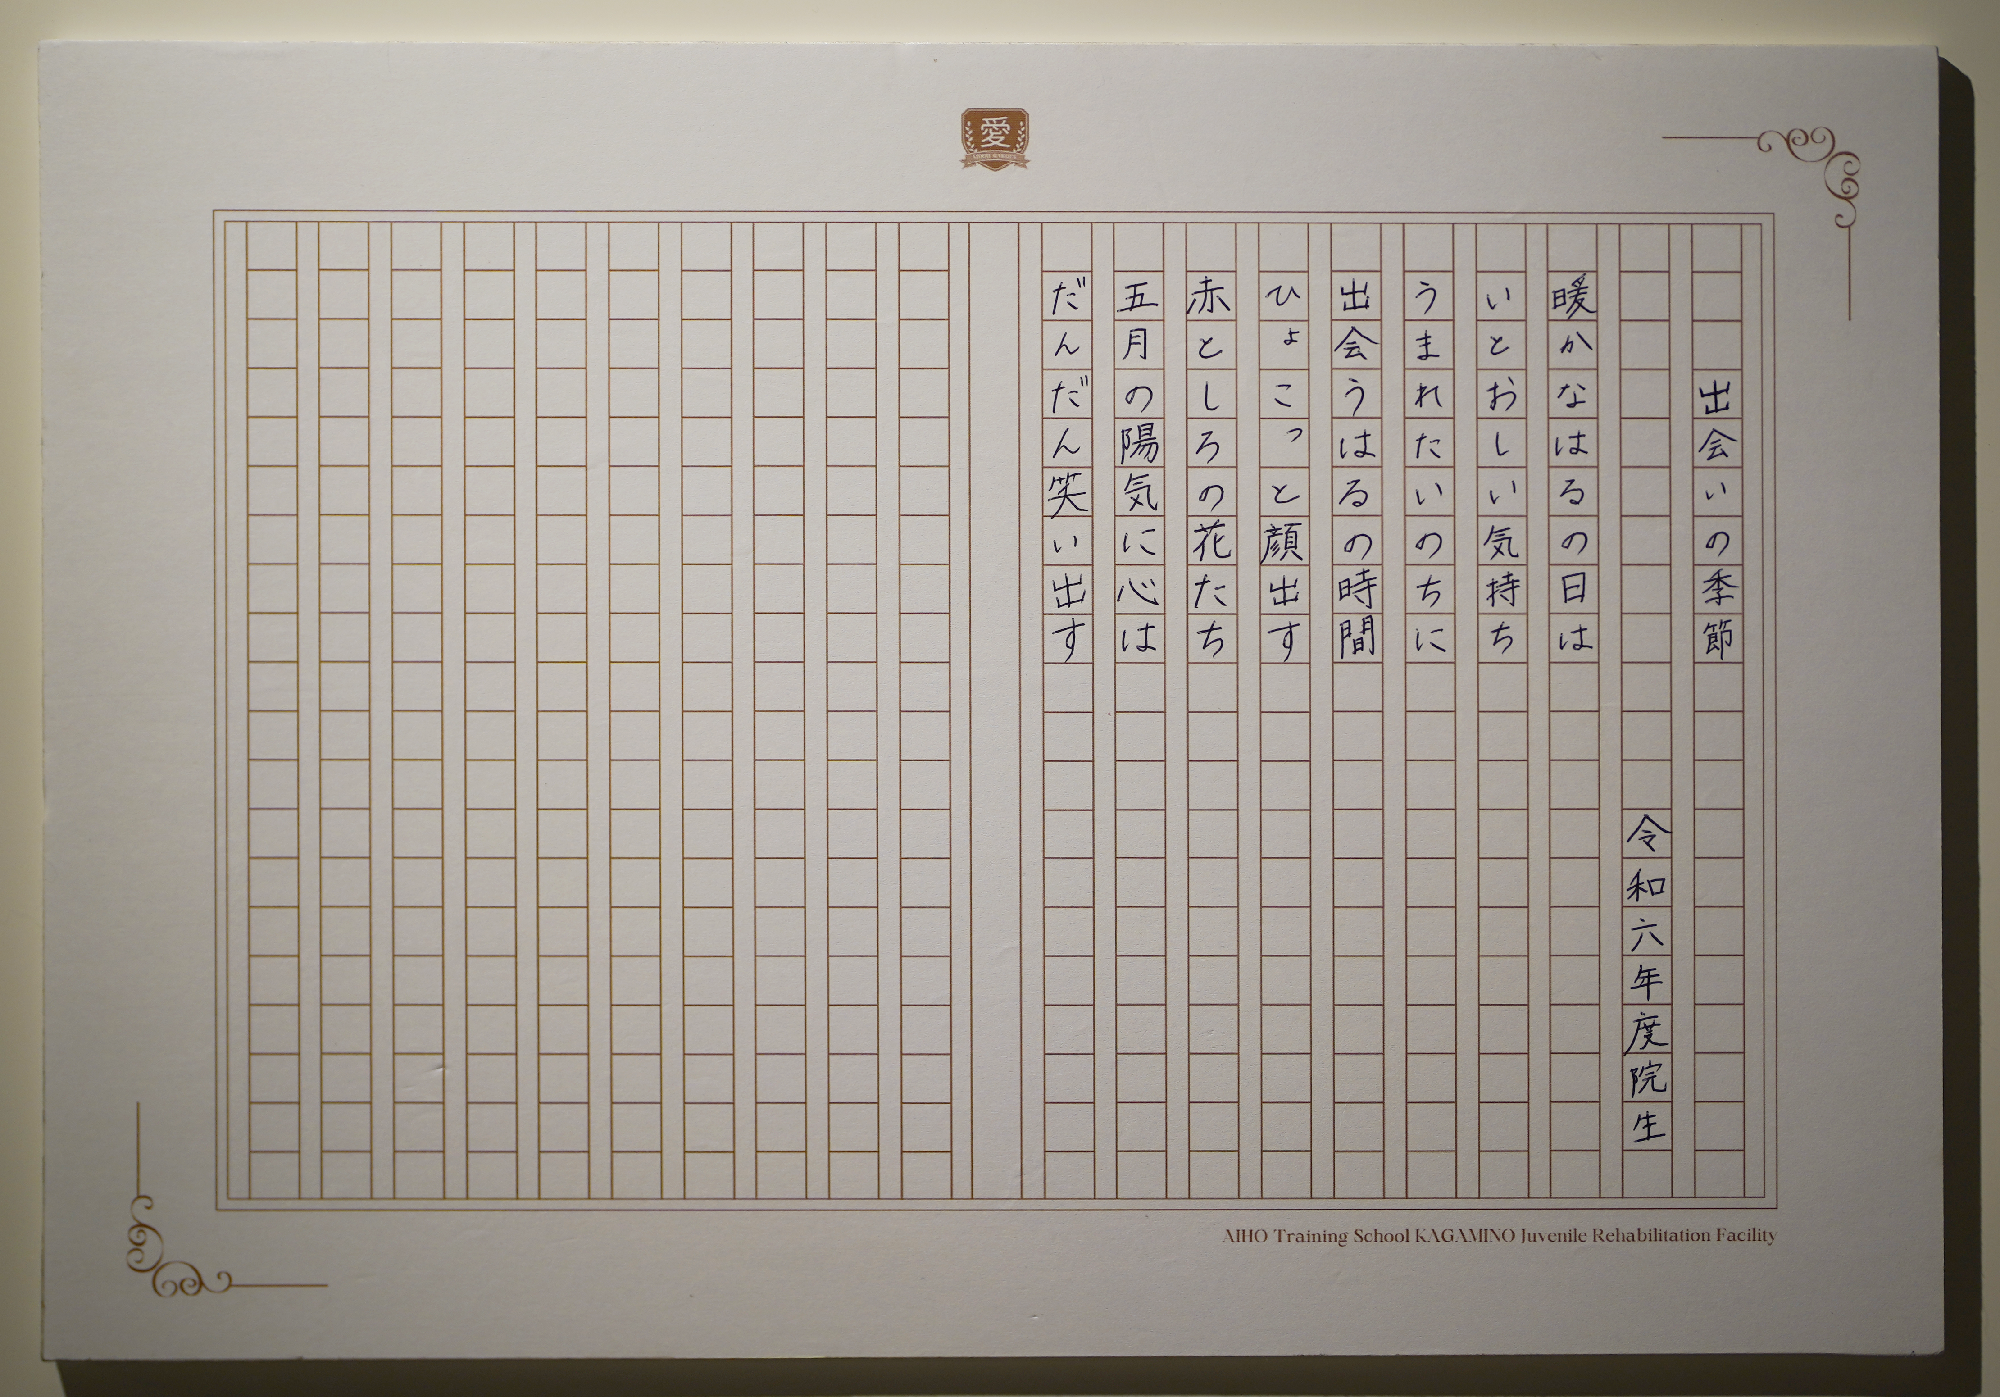 愛
出会いの季節
令和六年度院生
暖かなはるの日は
いとおしい気持ち
うまれたいのちに
出会うはるの時間
ひょこっと顔出す
赤としろの花たち
五月の陽気に心は
だんだん笑い出す
AIHO Training School KAGAMINO Juvenile Rehabilitation Facility